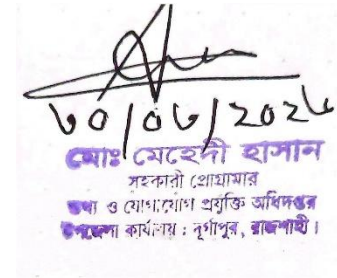 ৩০/০৬/২০২৬
মোঃ মেহেদী হাসান
সহকারী প্রোগ্রামার
তথ্য ও যোগাযোগ প্রযুক্তি অধিদপ্তর
উপজেলা কার্যালয় : দূর্গাপুর, রাজশাহী।